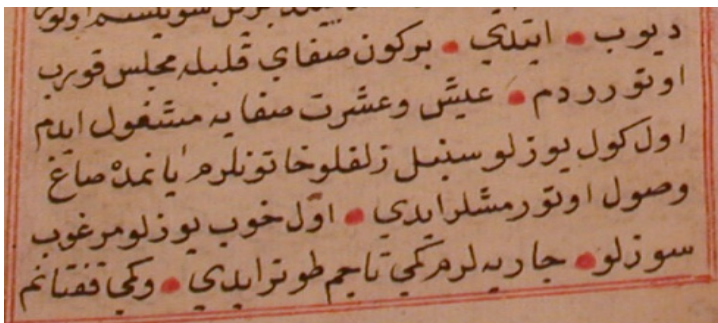 ديوب • ايتدي • بر كون صفاي قلبله مجلس قورب
اوتوررردم • عيش وعشرت صفايه مشغول ايدم
اول كول يوزلو سنبل زلفلو خاتونلرم يانمده صاغ
وصول اوتورمشلرايدي • اول خوب يوزلو مرغوب
سوزلو • جاريه لرم كمي تاجم طوترايدي • وكمي قفتانم